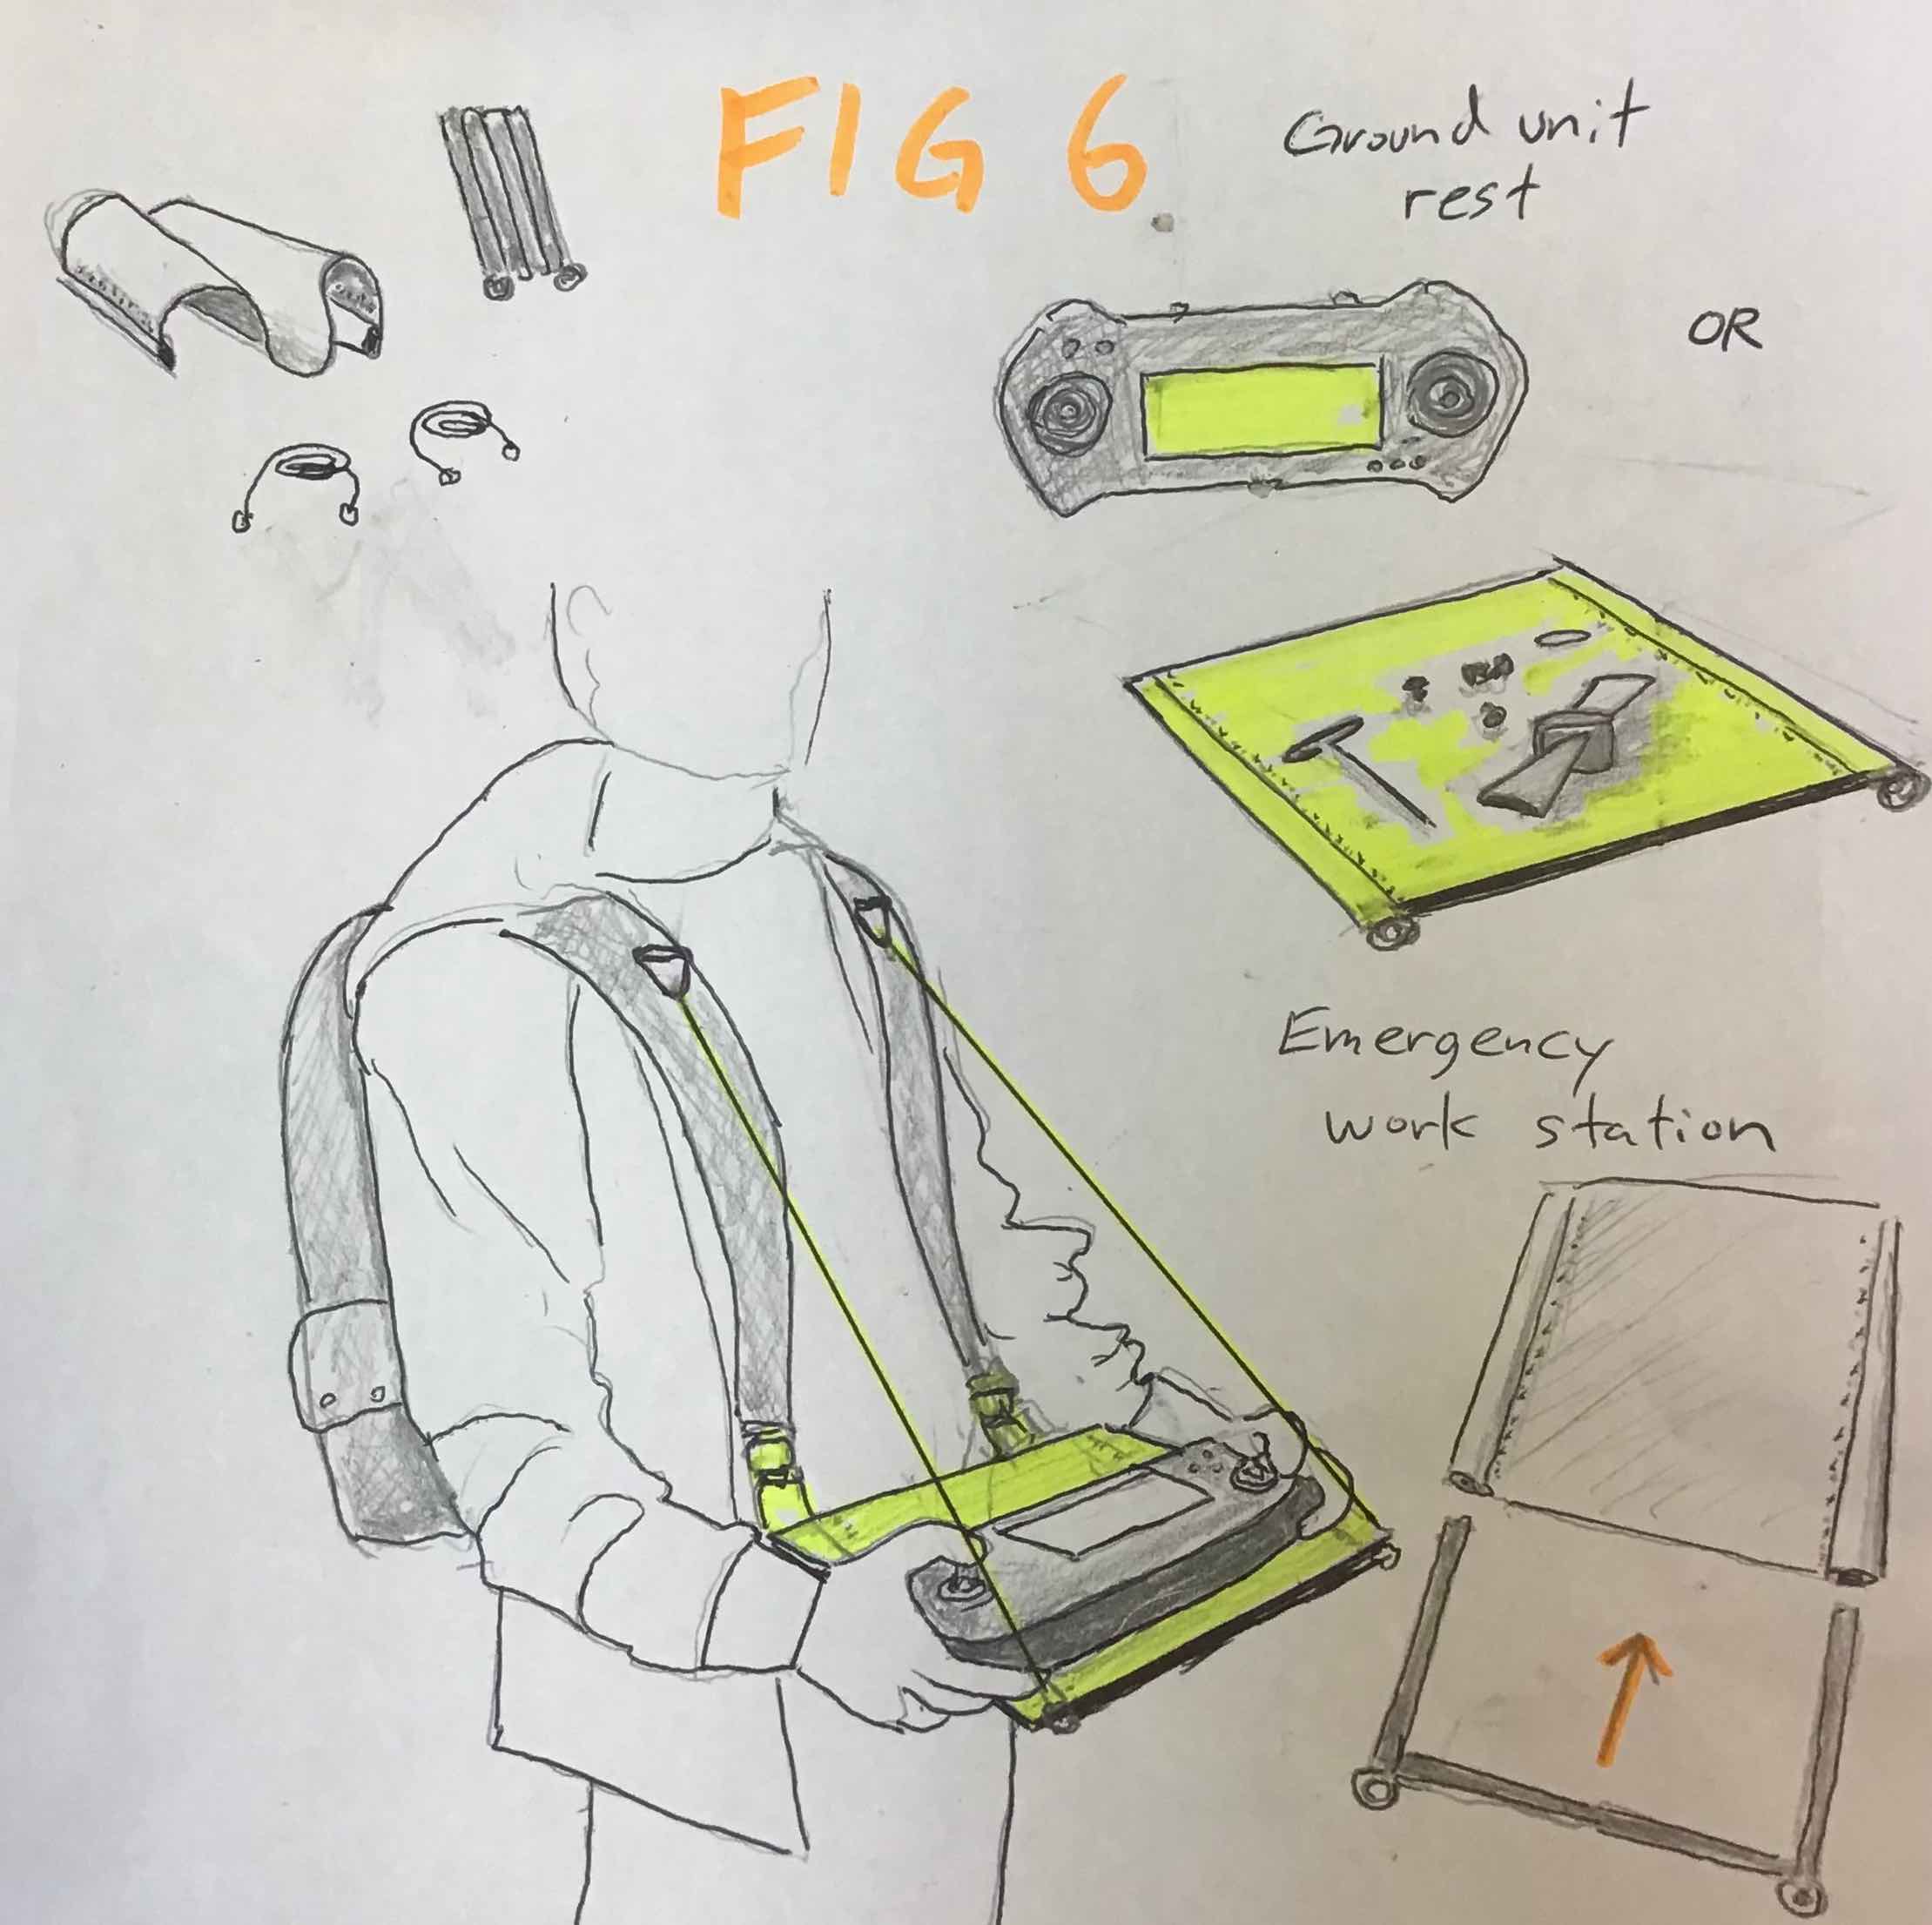 FIG 6
Ground unit
rest
OR
Emergency
work station